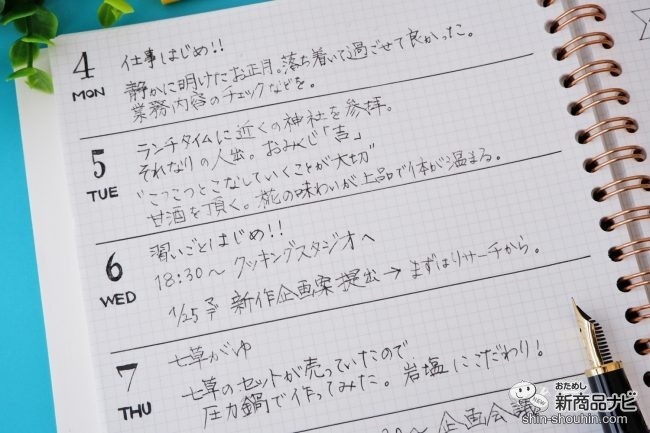 4
MON
仕事はじめ!!
静かに明けたお正月。落ち着いて過ごせて良かった。
業務内容のチェックなどを。
5
TUE
ランチタイムに近くの神社を参拝。
それなりの人出。おみくじ「吉」
"こつこつとこなしていくことが大切"
甘酒を頂く。糀の味わいが上品で体が温まる。
6
WED
習いごとはじめ!!
18:30〜 クッキングスタジオへ
1/25〆 新作企画案提出→まずはリサーチから。
7
THU
七草がゆ
七草のセットが売っていたので
圧力鍋で作ってみた。岩塩にこだわり!
企画会議
おためし
新商品ナビ
shin-shouhin.com